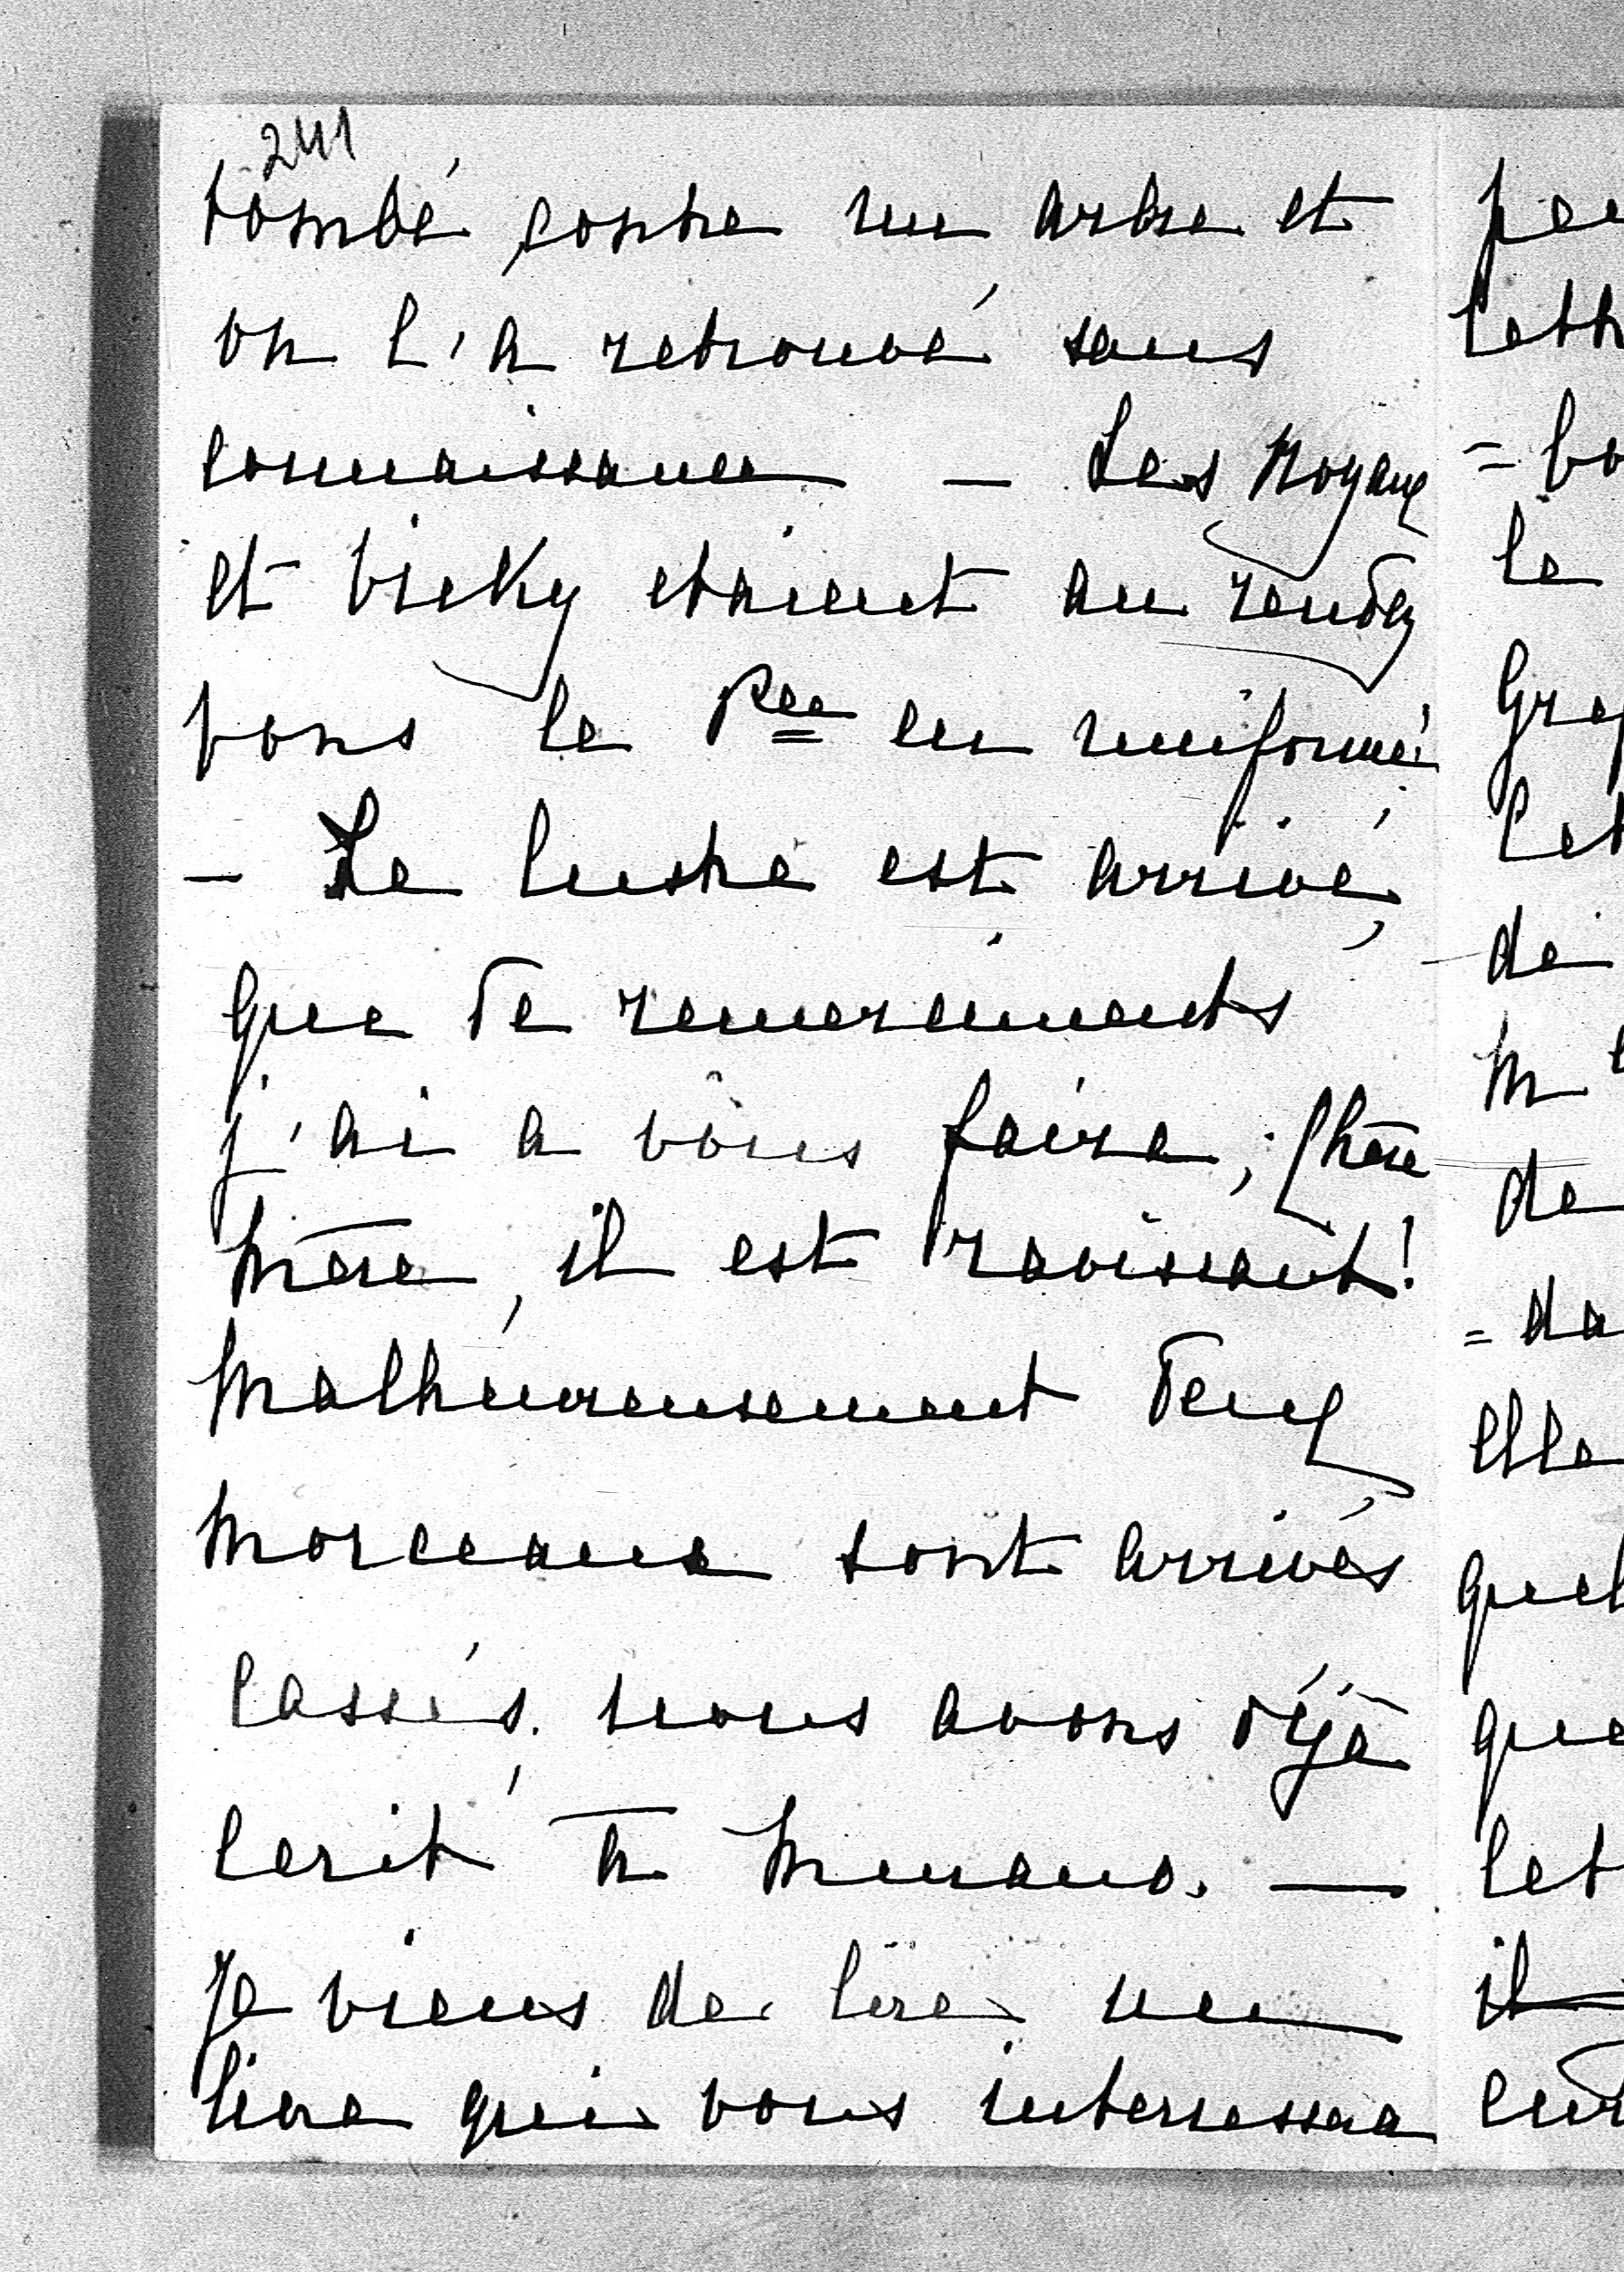 241
tombé contre un arbre et
on l'a retrouvé sans
connaissance — Les Noyaux
et Vicky etaient au rendez
vous le Pce en uniforme
— Le lustre est arrivé,
que de remerciments
j'ai a vous faire, chère
mère, il est ravissant!
Malheureusement deux
morceaux sont arrivés
cassés, nous avons déjà
ecrit à Murano. —
Je viens de lire un
livre qui vous interressera